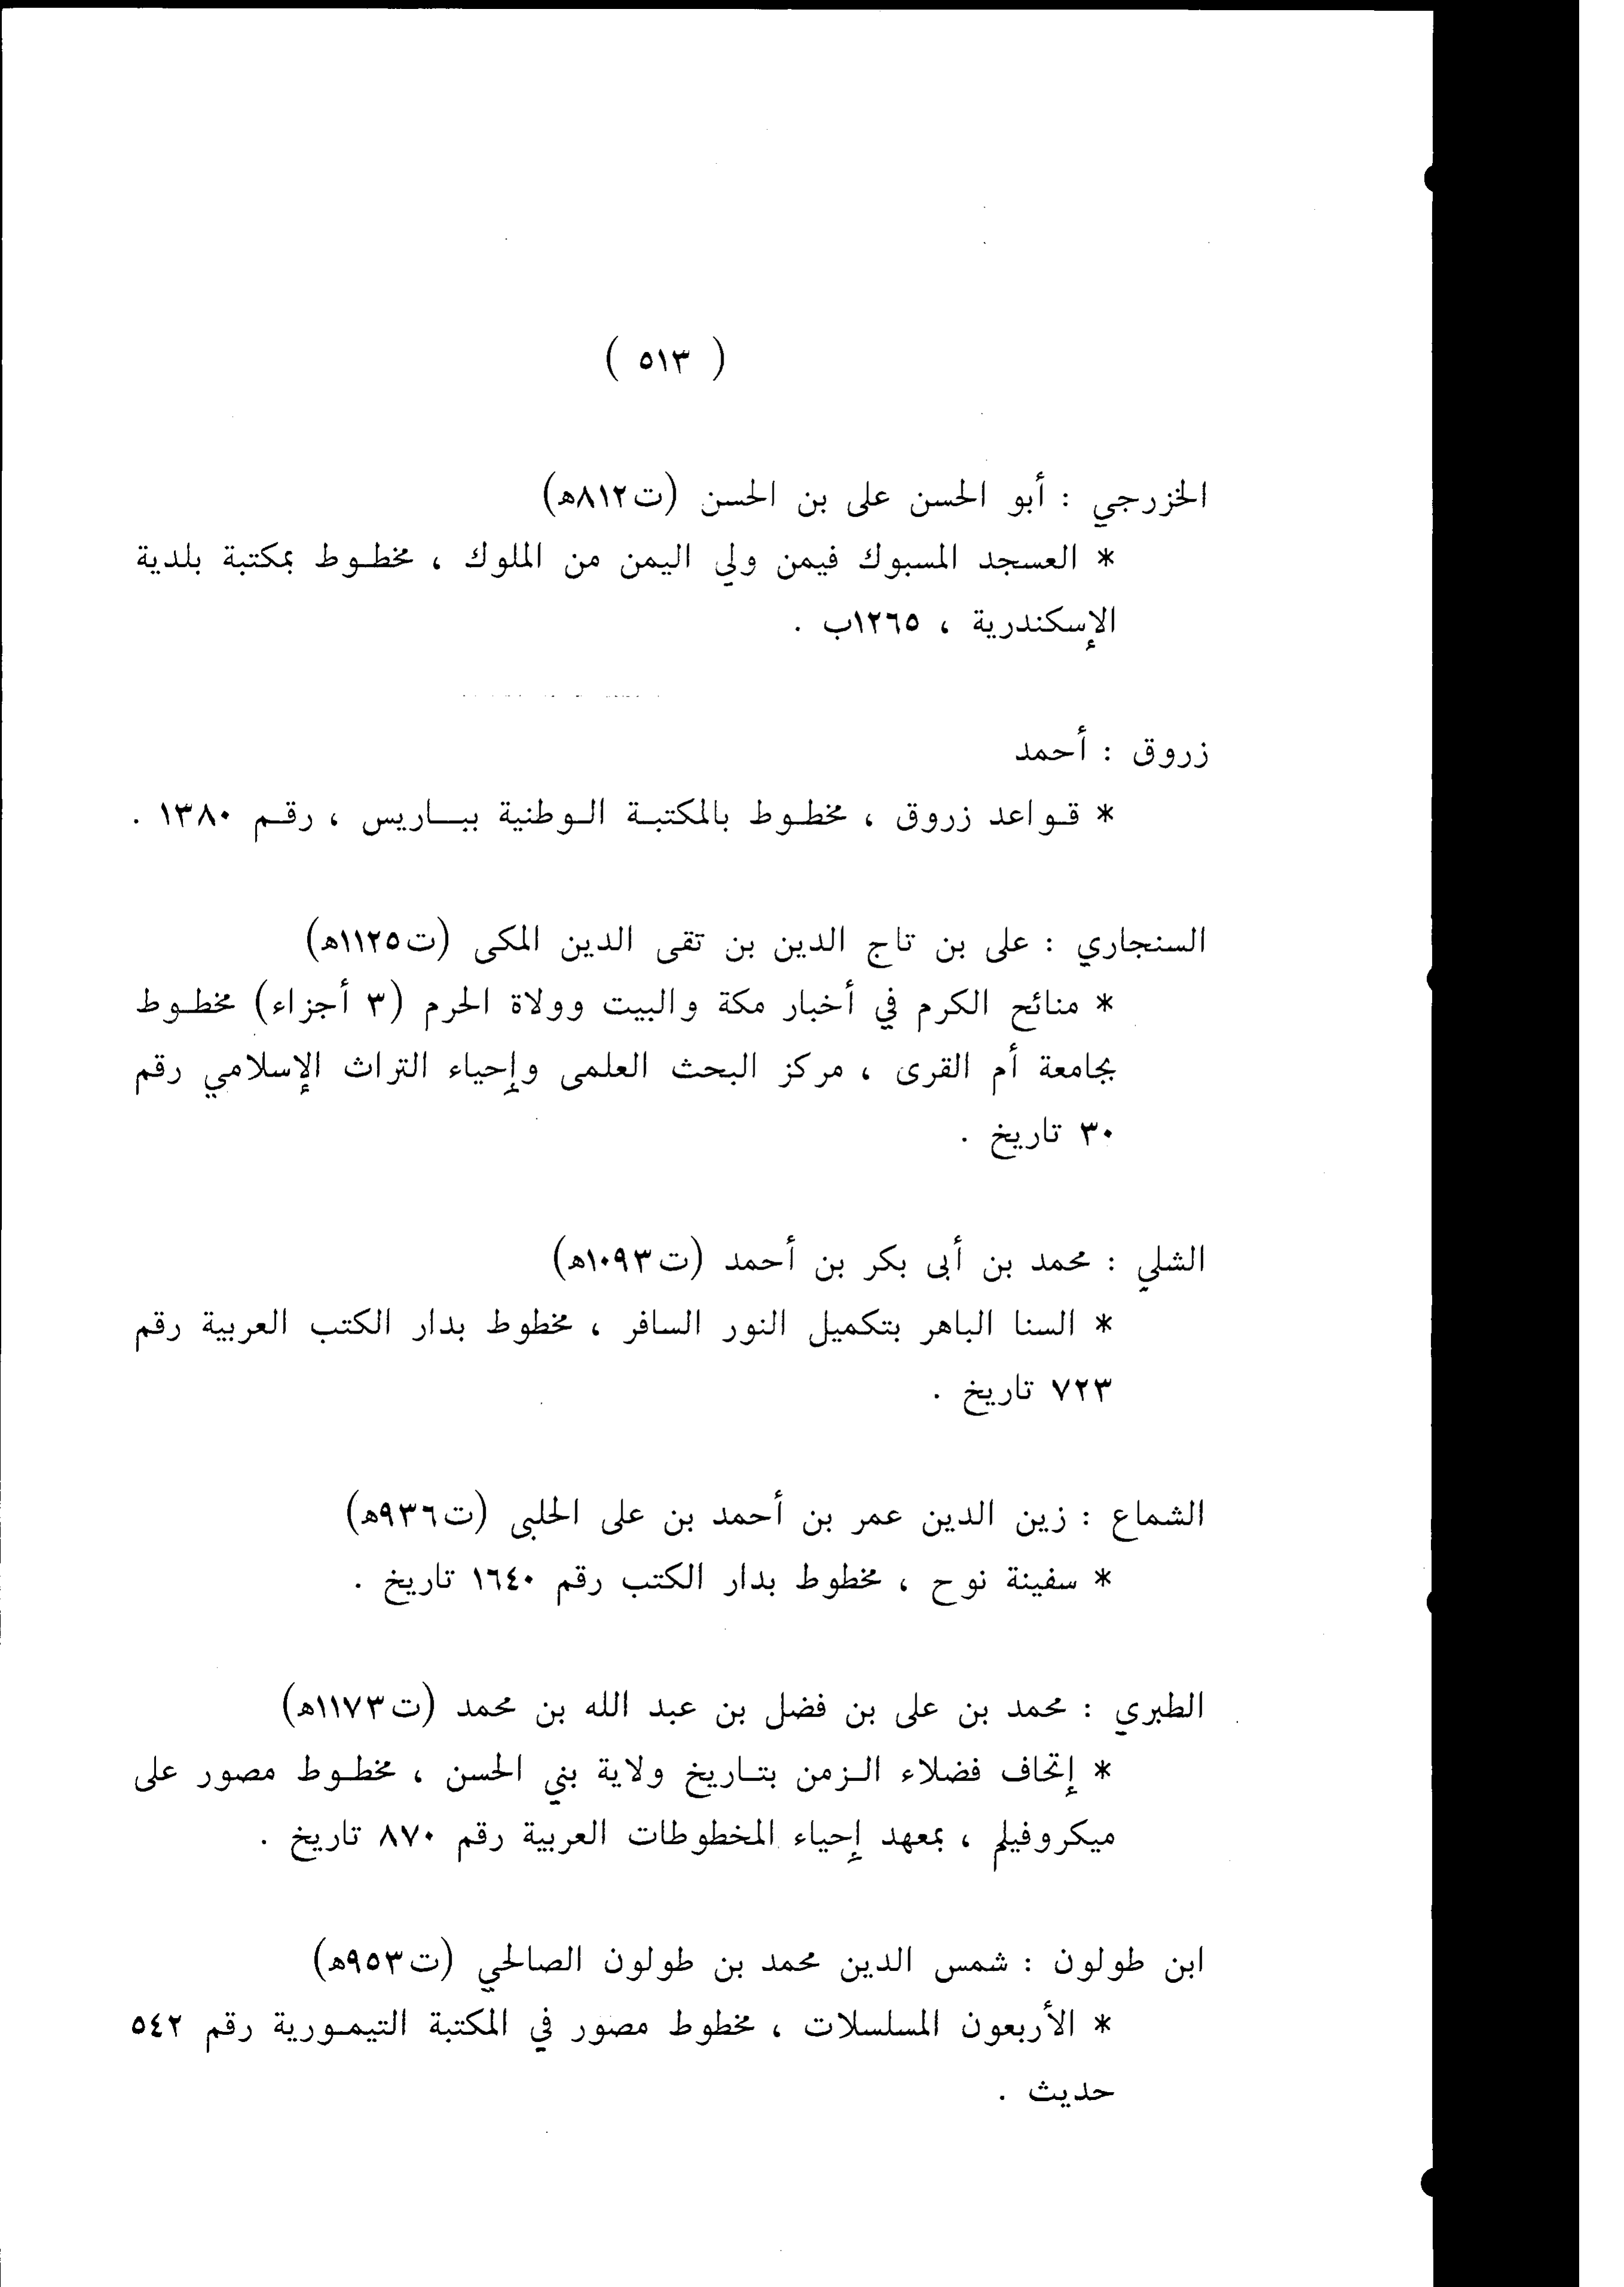 ( ٥١٣ )
الخزرجي : أبو الحسن على بن الحسن (ت٨١٢ه)
* العسجد المسبوك فيمن ولي اليمن من الملوك ، مخطوط بمكتبة بلدية
الإسكندرية ، ١٢٦٥ب .
زروق : أحمد
* قواعد زروق ، مخطوط بالمكتبة الوطنية بباريس ، رقم ١٣٨٠ .
السنجاري : على بن تاج الدين بن تقى الدين المكى (ت١١٢٥ه)
* منائح الكرم في أخبار مكة والبيت وولاة الحرم (٣ أجزاء) مخطوط
بجامعة أم القرى ، مركز البحث العلمى وإحياء التراث الإسلامي رقم
٣٠ تاريخ .
الشلي : محمد بن أبى بكر بن أحمد (ت١٠٩٣ه)
* السنا الباهر بتكميل النور السافر ، مخطوط بدار الكتب العربية رقم
٧٢٣ تاريخ .
الشماع : زين الدين عمر بن أحمد بن على الحلبى (ت٩٣٦ه)
* سفينة نوح ، مخطوط بدار الكتب رقم ١٦٤٠ تاريخ .
الطبري : محمد بن على بن فضل بن عبد الله بن محمد (ت١١٧٣ه)
* إتحاف فضلاء الزمن بتاريخ ولاية بني الحسن ، مخطوط مصور على
ميكروفيلم ، بمعهد إحياء المخطوطات العربية رقم ٨٧٠ تاريخ .
ابن طولون : شمس الدين محمد بن طولون الصالحي (ت٩٥٣ه)
* الأربعون المسلسلات ، مخطوط مصور في المكتبة التيمورية رقم ٥٤٢
حديث .